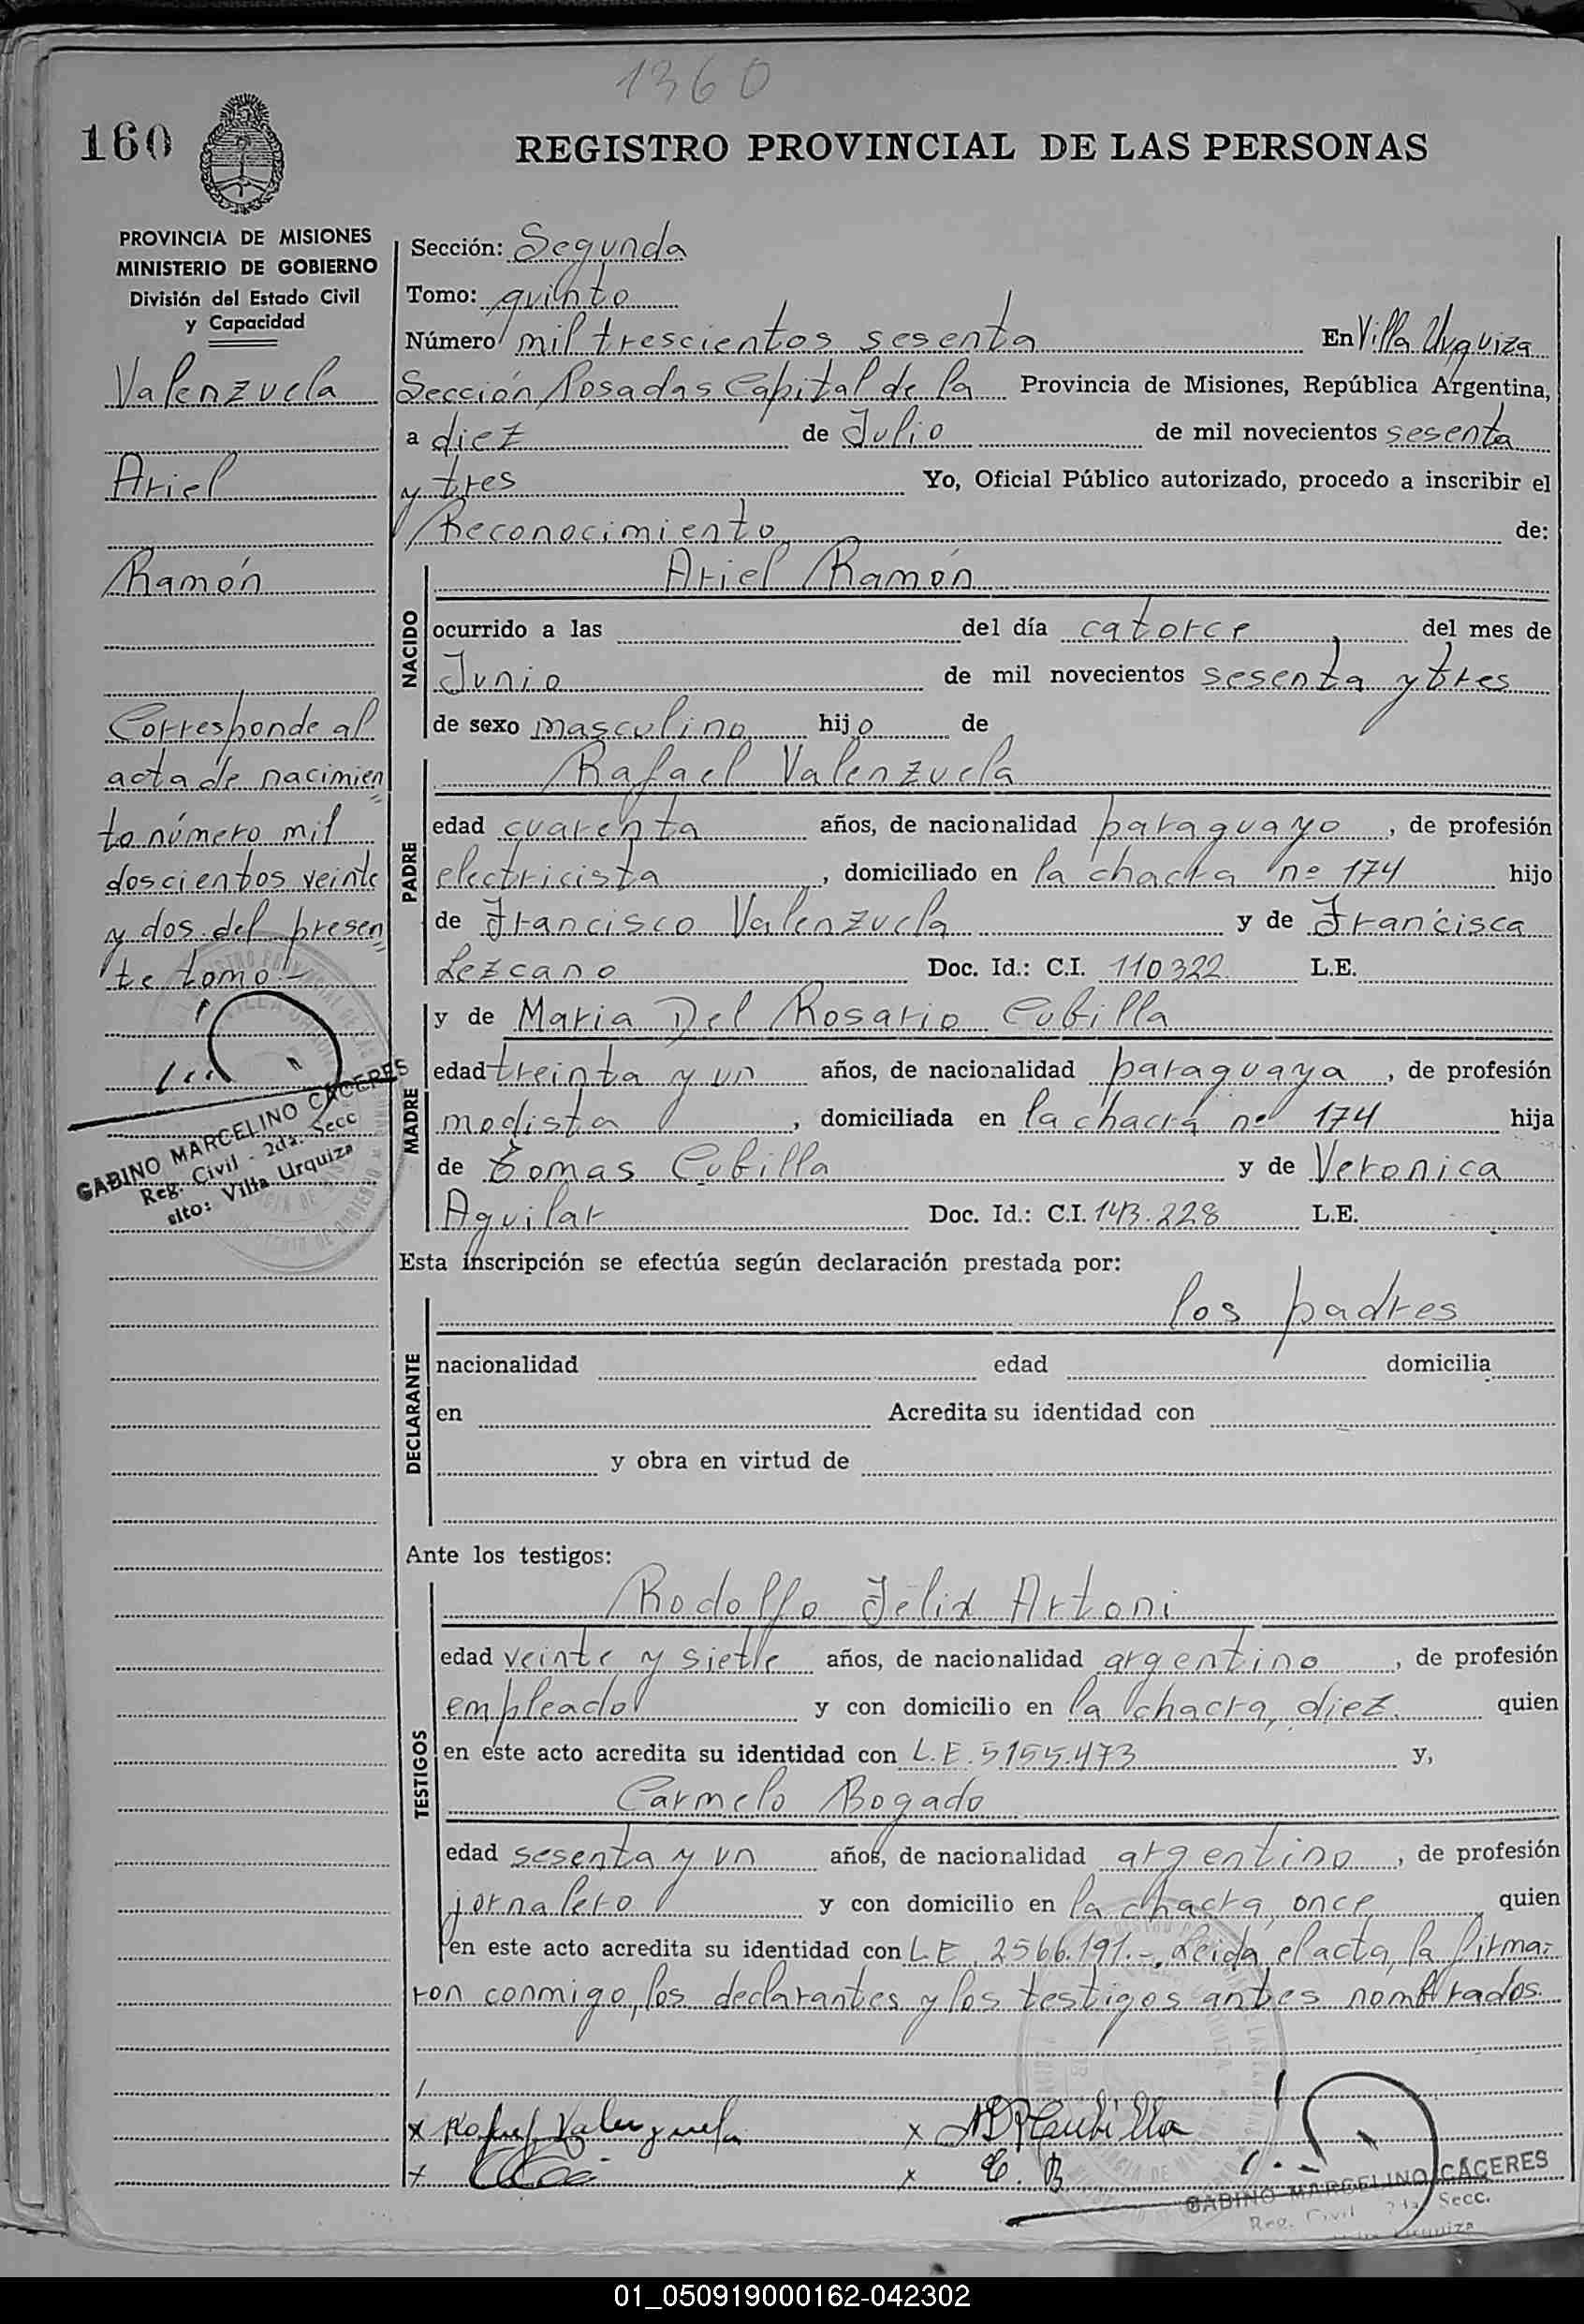 1360
160
REGISTRO PROVINCIAL DE LAS PERSONAS
PROVINCIA DE MISIONES
MINISTERIO DE GOBIERNO
División del Estado Civil
y Capacidad
Valenzuela
Ariel
Ramón
Corresponde al
acta de nacimien
to número mil
doscientos veinte
y dos del presen
te tomo -
GABINO MARCELINO CACERES
Reg. Civil - 2da. Secc
Villa Urquiza
Sección: Segunda
Tomo: quinto
Número mil trescientos sesenta En Villa Urquiza
Sección Posadas Capital de la Provincia de Misiones, República Argentina,
a diez de Julio de mil novecientos sesenta
y tres Yo, Oficial Público autorizado, procedo a inscribir el
Reconocimiento de:
NACIDO
Ariel Ramón
ocurrido a las del día catorce del mes de
Junio de mil novecientos sesenta y tres
de sexo masculino hijo de
PADRE
Rafael Valenzuela
edad cuarenta años, de nacionalidad paraguayo, de profesión
electricista, domiciliado en la chacra nº 174 hijo
de Francisco Valenzuela y de Francisca
Lezcano Doc. Id.: C.I. 110322 L.E.
MADRE
y de Maria Del Rosario Cubilla
edad treinta y un años, de nacionalidad paraguaya, de profesión
modista, domiciliada en la chacra nº 174 hija
de Tomas Cubilla y de Veronica
Aguilar Doc. Id.: C.I. 143.228 L.E.
Esta inscripción se efectúa según declaración prestada por:
DECLARANTE
los padres
nacionalidad edad domicilia
en Acredita su identidad con
y obra en virtud de
Ante los testigos:
TESTIGOS
Rodolfo Felix Artoni
edad veinte y siete años, de nacionalidad argentino, de profesión
empleado y con domicilio en la chacra, diez. quien
en este acto acredita su identidad con L.E. 5155.473 y,
Carmelo Bogado
edad sesenta y un años, de nacionalidad argentino, de profesión
jornalero y con domicilio en la chacra, once quien
en este acto acredita su identidad con L.E. 2566.191.-. Leida el acta, la firma=
ron conmigo, los declarantes y los testigos antes nombrados.
x Rafael Valenzuela x MDRCubilla
x x C. B
GABINO MARCELINO CACERES
Reg. Civil 2da. Secc.
01_050919000162-042302